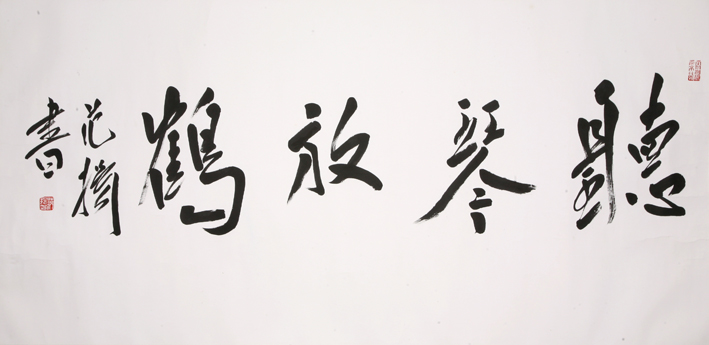 聽琴放鶴
范擴
書